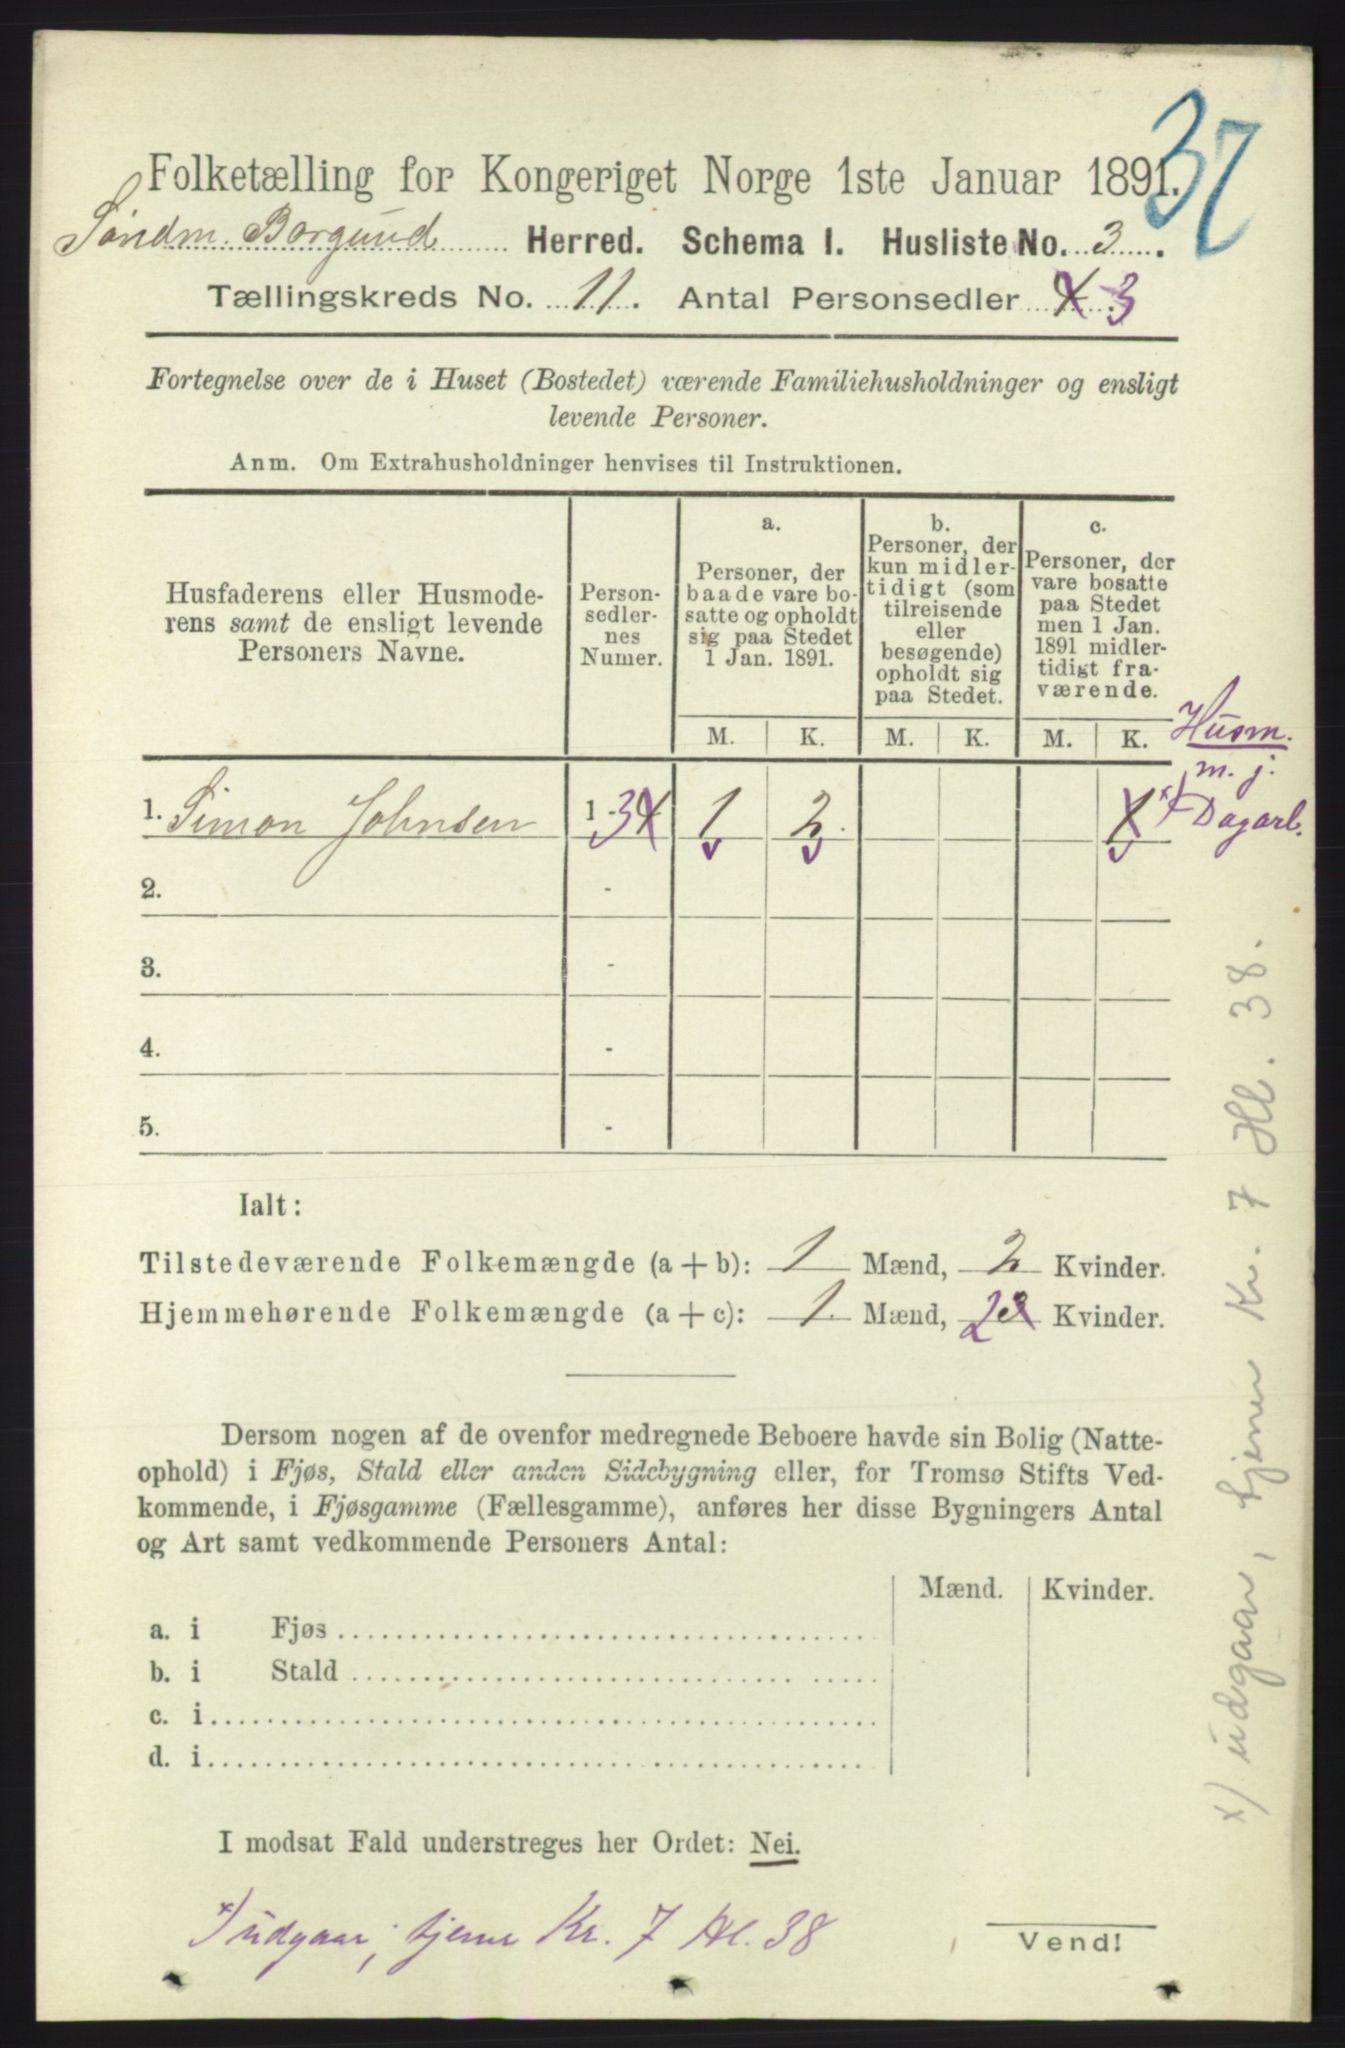 37
Folketælling for Kongeriget Norge 1ste Januar 1891.
Söndm. Borgund Herred. Schema I. Husliste No. 3.
Tællingskreds No. 11. Antal Personsedler 4 3
Fortegnelse over de i Huset (Bostedet) værende Familiehusholdninger og ensligt
levende Personer.
Anm. Om Extrahusholdninger henvises til Instruktionen.
Husfaderens eller Husmode-
rens samt de ensligt levende
Personers Navne.
Person-
sedler-
nes
Numer.
a.
Personer, der
baade vare bo-
satte og opholdt
sig paa Stedet
1 Jan. 1891.
b.
Personer, der
kun midler-
tidigt (som
tilreisende
eller
besøgende)
opholdt sig
paa Stedet.
c.
Personer, der
vare bosatte
paa Stedet
men 1 Jan.
1891 midler-
tidigt fra-
værende.
M. K. M. K. M. K.
Husm.
m. j.
1. Simon Johnsen 1 - 3 4 1 2. 1 x) Dagarb.
2. -
3. -
4. -
5. -
Ialt:
Tilstedeværende Folkemængde (a + b): 1 Mænd, 2 Kvinder.
Hjemmehørende Folkemængde (a + c): 1. Mænd, 2 3 Kvinder.
Dersom nogen af de ovenfor medregnede Beboere havde sin Bolig (Natte-
ophold) i Fjøs, Stald eller anden Sidebygning eller, for Tromsø Stifts Ved-
kommende, i Fjøsgamme (Fællesgamme), anføres her disse Bygningers Antal
og Art samt vedkommende Personers Antal:
Mænd. Kvinder.
a. i Fjøs
b. i Stald
c. i
d. i
I modsat Fald understreges her Ordet: Nei.
x) udgaar, tjener Kr. 7 Hl. 38
Vend!
x) udgaar, tjener Kr. 7 Hl. 38.